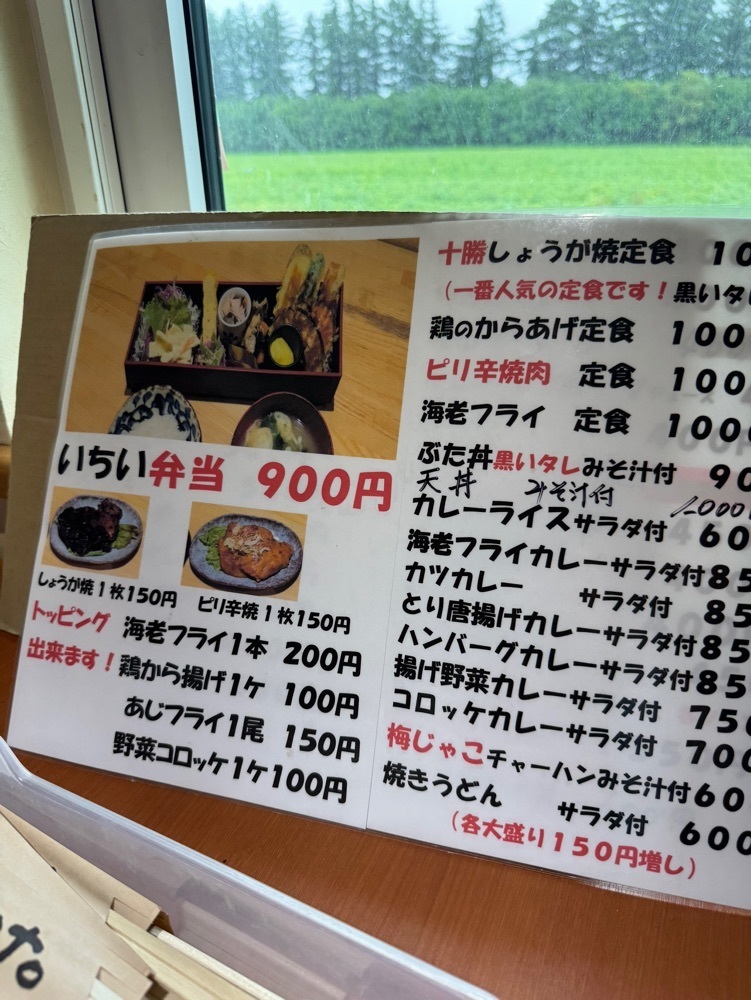 いちい弁当 900円
しょうが焼1枚150円
ピリ辛焼1枚150円
トッピング
出来ます！
海老フライ1本 200円
鶏から揚げ1ケ 100円
あじフライ1尾 150円
野菜コロッケ1ケ100円
十勝しょうが焼定食 10
（一番人気の定食です！黒いタレ
鶏のからあげ定食 100
ピリ辛焼肉 定食 100
海老フライ 定食 1000
ぶた丼黒いタレみそ汁付 90
天丼 みそ汁付 1000
カレーライスサラダ付 60
海老フライカレーサラダ付85
カツカレー サラダ付 85
とり唐揚げカレーサラダ付85
ハンバーグカレーサラダ付85
揚げ野菜カレーサラダ付 750
コロッケカレーサラダ付 700
梅じゃこチャーハンみそ汁付60
焼きうどん サラダ付 600
（各大盛り150円増し）
す。